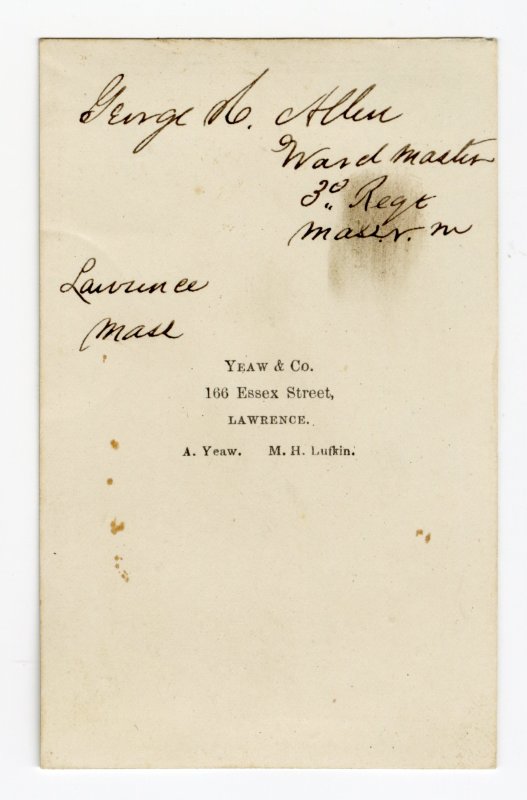 George A. Allen
Ward Master
3d Regt
Mass. V. M
Lawrence
Mass
YEAW & CO.
166 Essex Street,
LAWRENCE.
A. Yeaw. M. H. Lufkin.